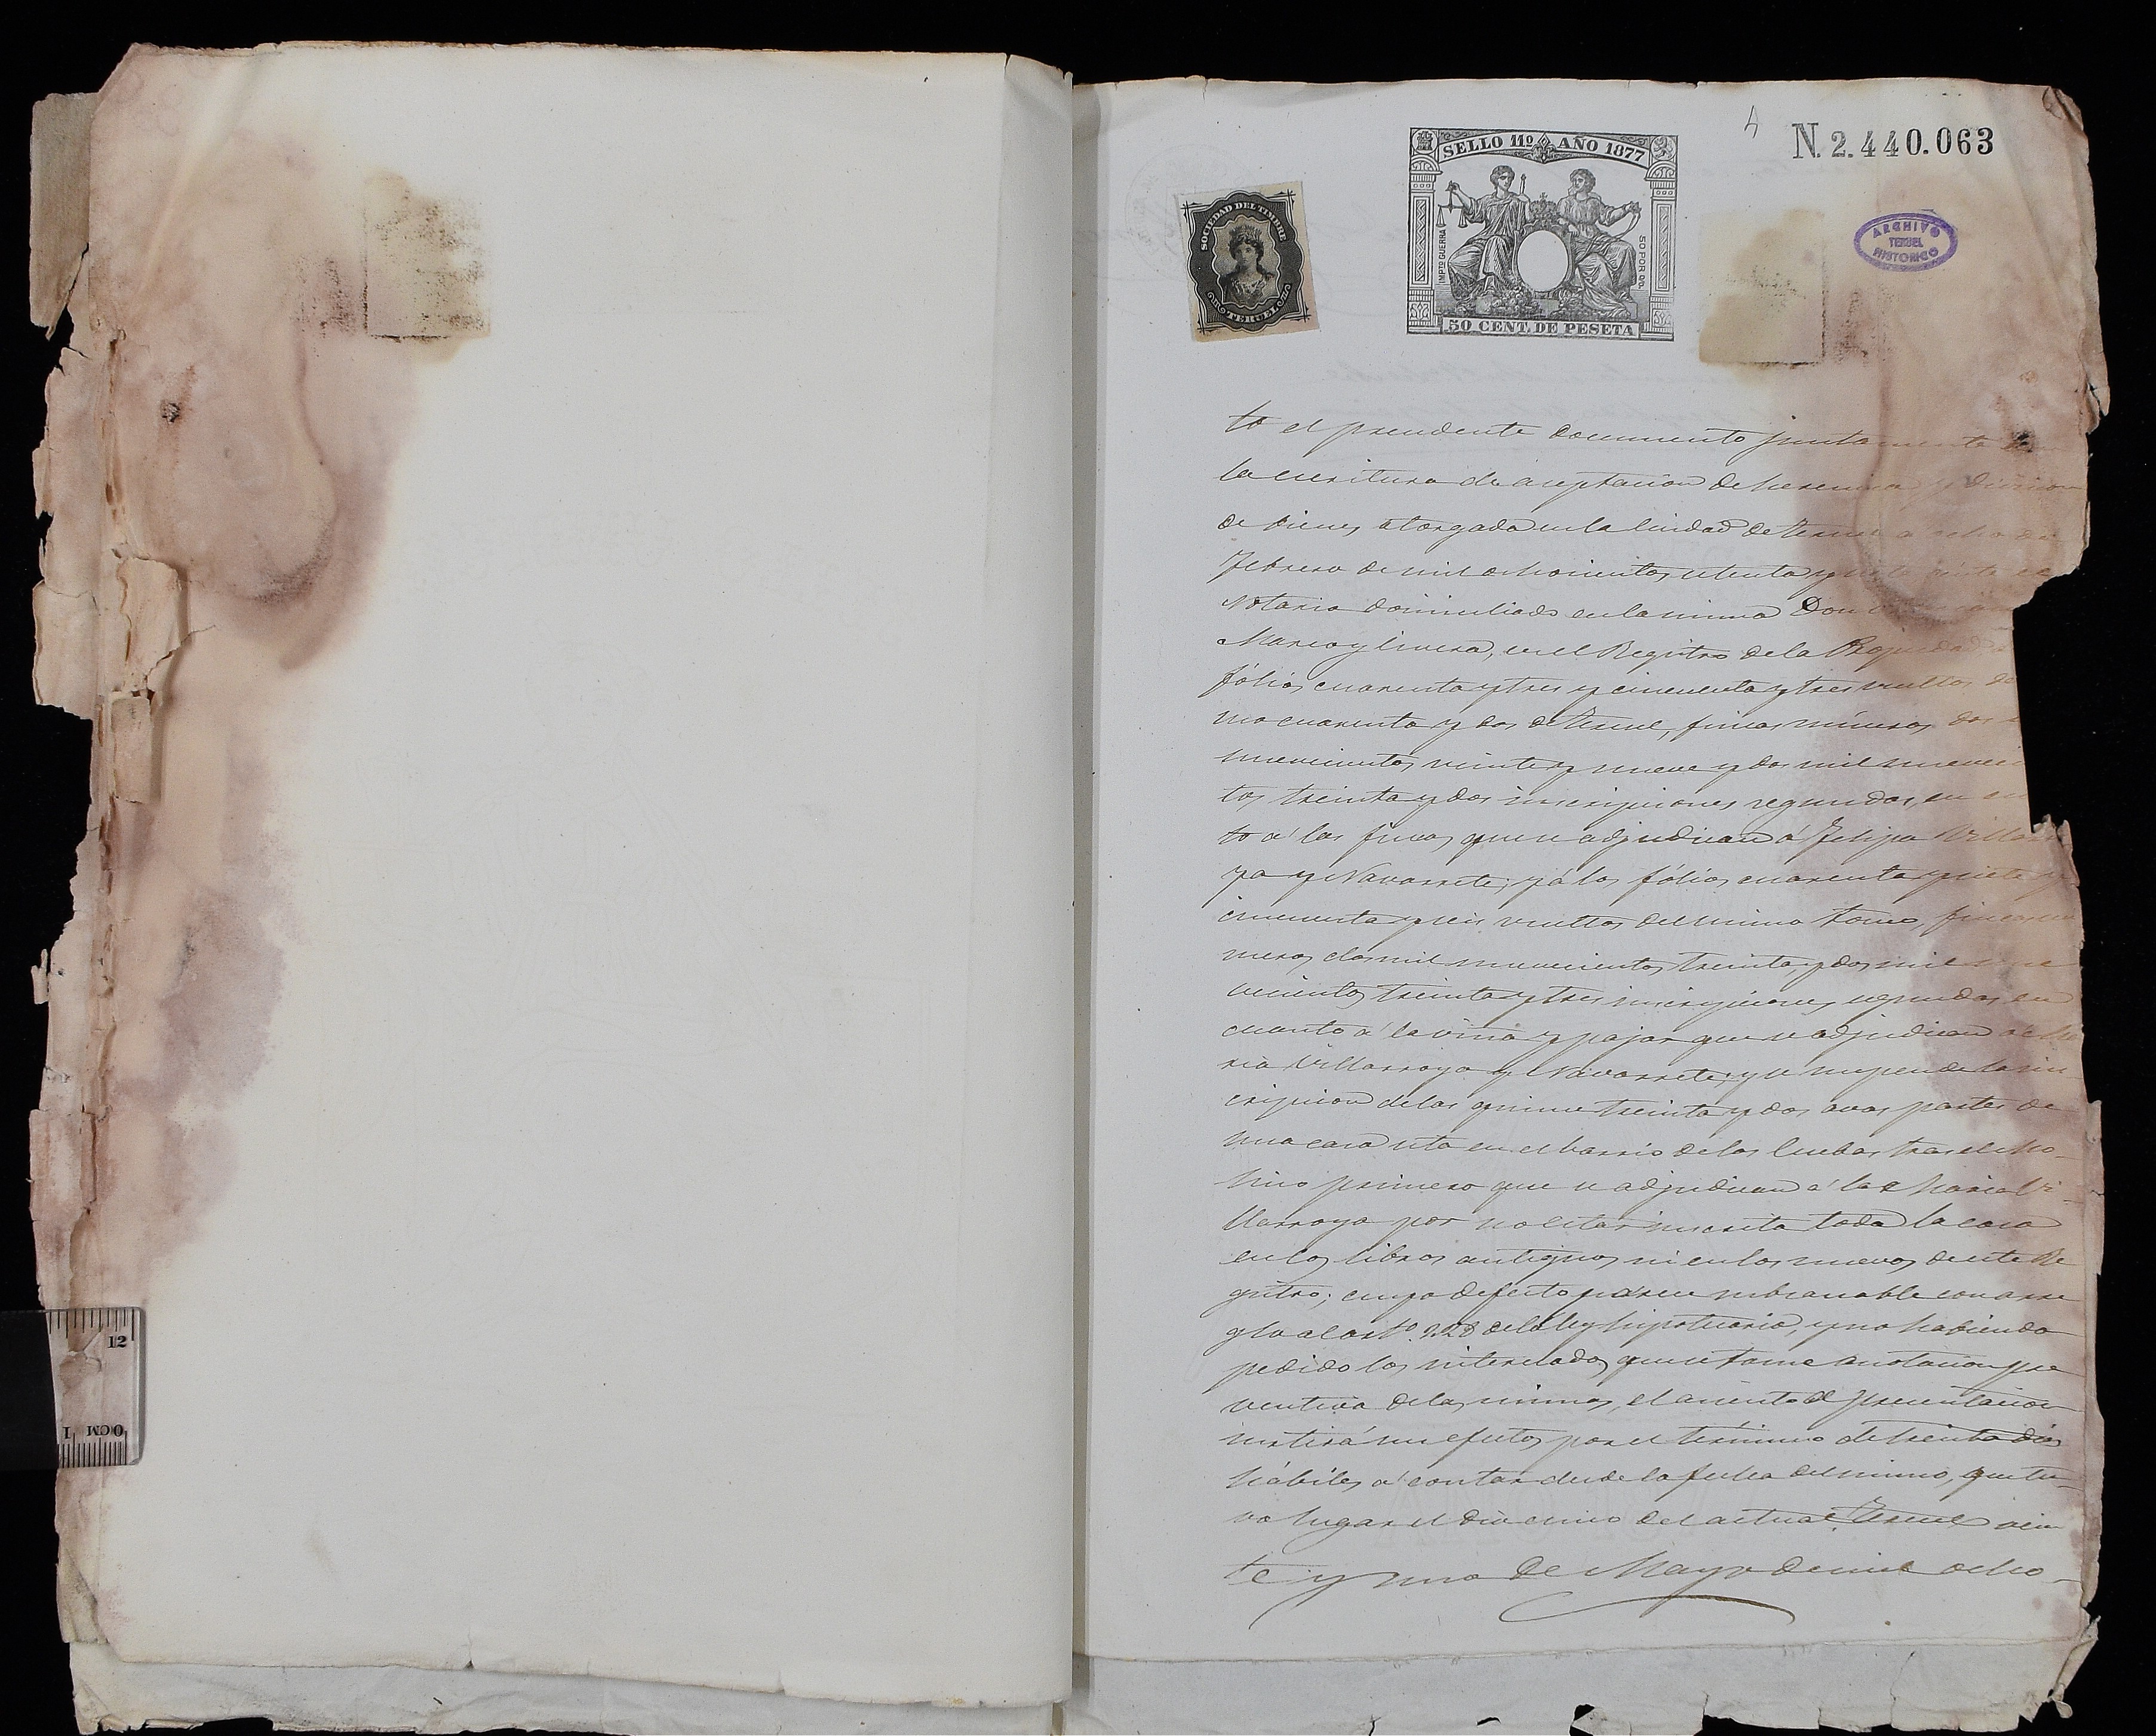 4
N. 2.440.063
SELLO 11º AÑO 1877
IMPTO GUERRA
50 POR %
50 CENT. DE PESETA
SOCIEDAD DEL TIMBRE
TERUEL
ARCHIVO
TERUEL
HISTORICO
to el precedente documento juntamente
la escritura de aceptacion de herencia y division
de bienes otorgada en la Ciudad de Teruel a ocho de
Febrero de mil ochocientos setenta y
Notario domiciliado en la misma Don
Marco y Civera, en el Registro de la Propiedad
fólios cuarenta y tres y cincuenta y tres vueltos
mo cuarenta y dos de Teruel, fincas números dos
novecientos veinte y nueve y dos mil novecien
tos treinta y dos inscripciones segundas, en
to á las fincas que se adjudican á Felipa Villar
ya y Navarrete; y á los fólios cuarenta y siete y
cincuenta y seis vueltos del mismo tomo, fincas nú
meros dos mil novecientos treinta, y dos mil nove
cientos treinta y tres inscripciones segundas en
cuanto á la viña y pajar que se adjudican
ria Villarroya y Navarrete; y se suspende la ins-
cripcion de las quince treinta y dos avas partes de
una casa sita en el barrio de las Cuebas tras el Mo-
lino primero que se adjudican á la Maria Vi-
llarroya por no estar inscrita toda la casa
en los libros antiguos ni en los nuevos de este Re
gistro; cuyo defecto parece subsanable con arre
glo al artº. 228 de la ley hipotecaria, y no habiendo
pedido los interesados que se tome anotacion pre
ventiva de las mismas, el asiento de presentacion
surtirá sus efectos por el término de treinta dias
hábiles á contar desde la fecha del mismo, que tu-
vo lugar el dia cinco del actual. Teruel vein
te y uno de Mayo de mil ocho-
12
0CM 1